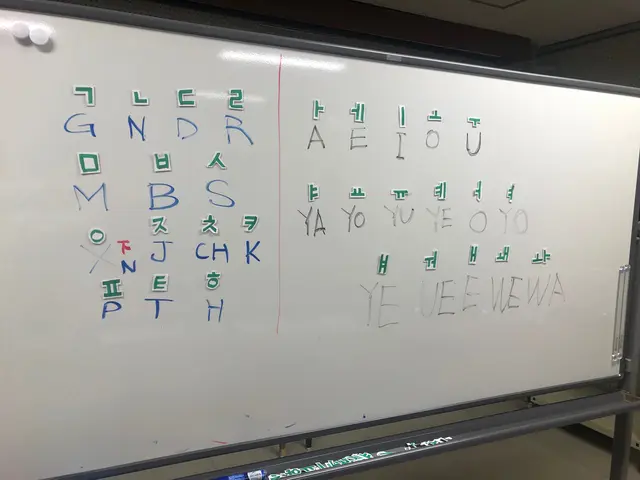 ㄱ ㄴ ㄷ ㄹ
G N D R
ㅁ ㅂ ㅅ
M B S
ㅇ ㅈ ㅊ ㅋ
X N J CH K
ㅍ ㅌ ㅎ
P T H
ㅏ ㅔ ㅣ ㅗ ㅜ
A E I O U
ㅑ ㅛ ㅠ ㅖ ㅓ ㅕ
YA YO YU YE O YO
YE UE E WE WA